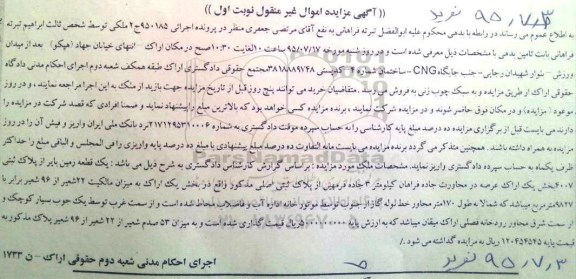 ۹۵،۷،۳ تفرید
(( آگهی مزایده اموال غیر منقول نوبت اول ))
به اطلاع عموم می رساند در رابطه با بدهی محکوم علیه ابوالفضل تبرته فراهانی به نفع آقای مرتضی جعفری منظر در پرونده اجرائی ۹۵۰۱۸۵ج۲ ملکی توسط شخص ثالث ابراهیم تبرته
فراهانی بابت تامین بدهی با مشخصات ذیل معرفی شده است و در روز شنبه مورخه ۹۵/۰۷/۱۷ ساعت ۱۰ لغایت ۱۰:۳۰ صبح در مکان اراک انتهای خیابان جهاد (هپکو) بعد از میدان
ورزش - بلوار شهیدان رجایی - جنب جایگاه CNG - ساختمان شماره ۲ کدپستی ۳۸۱۸۸۸۹۷۶۸ مجتمع حقوقی دادگستری اراک طبقه همکف شعبه دوم اجرای احکام مدنی دادگاه
حقوقی اراک از طریق مزایده و به سبک چوب زنی به فروش می رسد. متقاضیان خرید می توانند پنج روز قبل از تاریخ مزایده جهت بازدید از ملک به این اجرا مراجعه نمایند ، و در روز
موعود ( مزایده ) و در مکان فوق حاضر شوند و در مزایده شرکت نمایند ، برنده مزایده کسی خواهد بود که بالاترین مبلغ را پیشنهاد نماید و ضمنا افرادی که قصد شرکت در مزایده را
دارند می بایست قبل از برگزاری مزایده ده درصد مبلغ پایه کارشناسی را به حساب سپرده موقت دادگستری به شماره ۲۱۷۱۲۹۵۳۱۰۰۰۶ نزد بانک ملی ایران واریز و فیش آن را در روز
مزایده به همراه داشته باشند . همچنین متذکر می گردد برنده مزایده می بایست مابه التفاوت ده درصد مبلغ پیشنهادی با مبلغ ده درصد پایه واریزی را فی المجلس و الباقی مبلغ را حداکثر
ظرف یکماه به حساب سپرده دادگستری واریز نماید. مشخصات ملک مورد مزایده : براساس گزارش کارشناس دادگستری به شرح ذیل می باشد : یک قطعه زمین بایر از پلاک ثبتی
۴۰۰۷ بخش یک اراک عرصه در مجاورت جاده فراهان کیلومتر ۳ جاده فرمهین از پلاک ثبتی اصلی مذکور واقع در بخش یک اراک به میزان مالکیت ۲۲ شعیر از ۹۶ شعیر برابر با
۹۸۲۷ مترمربع میباشد که شمالا به طول ۱۷۰ متر محور خط لوله گاز از جنوب توسط موتور خانه اداره آب و فاضلاب محاط شده است و از سمت غرب توسط یک جوب بسیار کوچک و
از سمت شرق مجاور رودخانه فصلی اراک میقان میباشد که به ارزش پایه ریال قیمت گذاری شده است و به میزان ۵۳ صدم شعیر از ۲۲ شعیر از ۹۶ شعیر پلاک مذکور به
قیمت پایه ۱۲۰۴۵۴۵۴۵ ریال به مزایده گذاشته می شود ./
اجرای احکام مدنی شعبه دوم حقوقی اراک - ن ۱۷۳۳
۹۵،۷،۳